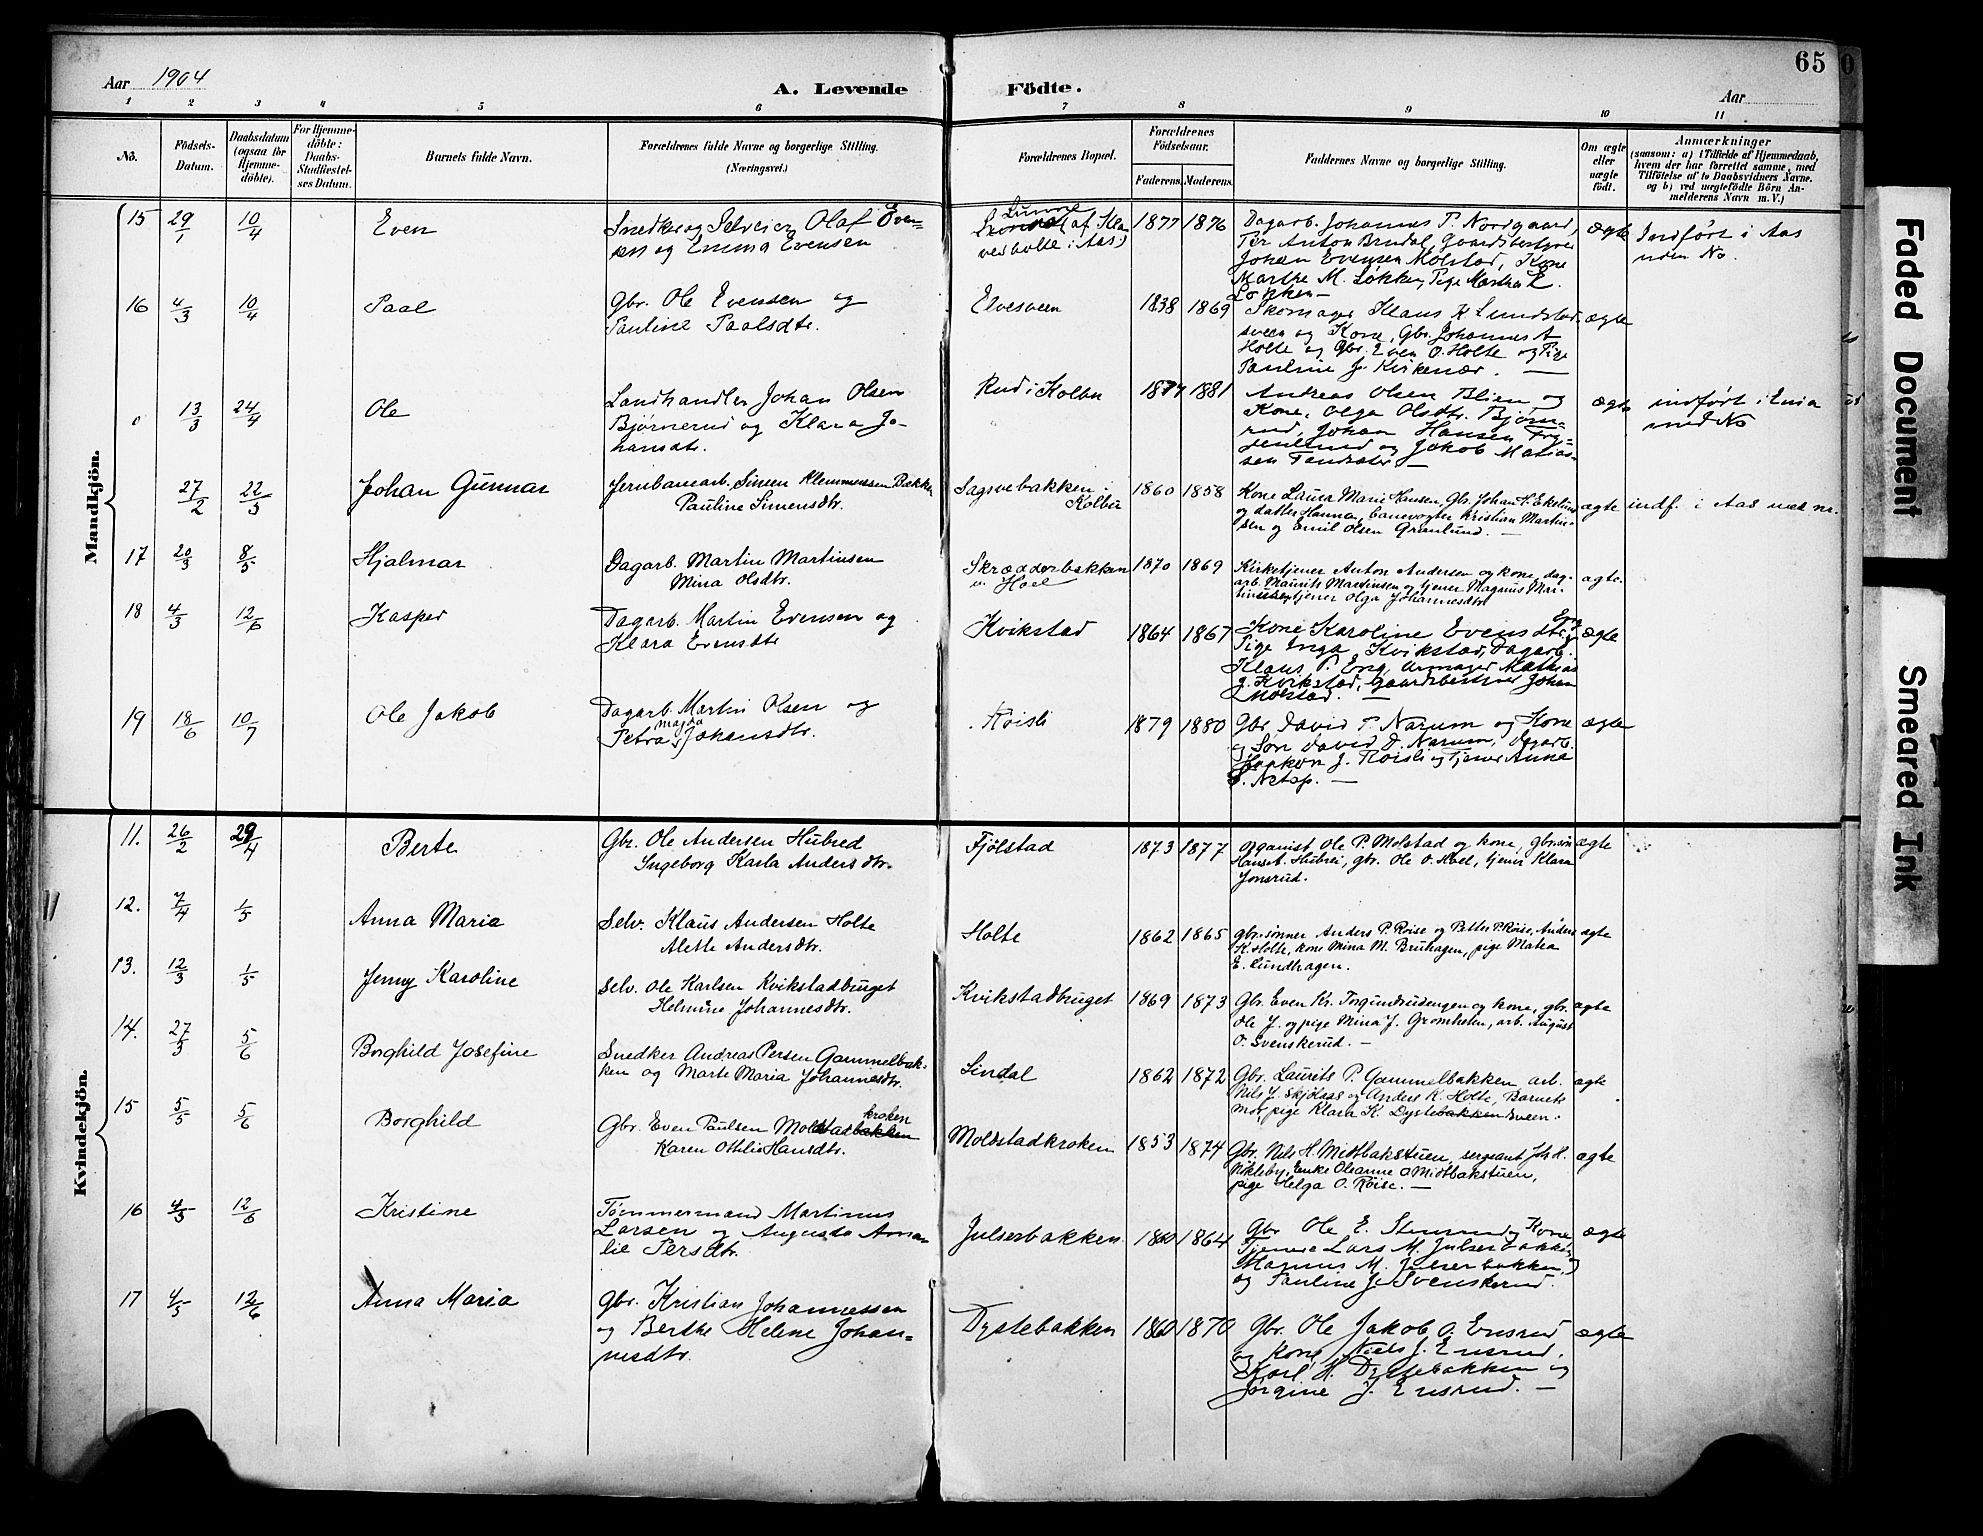 65
Aar 1904
A. Levende Födte.
Aar
1 2 3 4 5 6 7 8 9 10 11
No.
Födsels-
Datum.
Daabsdatum
(ogsaa for
Hjemme-
döbte).
For Hjemme-
döbte:
Daabs-
Stadfæstel-
ses Datum.
Barnets fulde Navn.
Forældrenes fulde Navne og borgerlige Stilling.
(Næringsvei.)
Forældrenes Bopæl.
Forældrenes
Födselsaar.
Faderens. Moderens.
Faddernes Navne og borgerlige Stilling.
Om ægte
eller
uægte
födt.
Anmærkninger
(saasom: a) i Tilfælde af Hjemmedaab,
hvem der har forrettet samme, med
Tilföielse af to Daabsvidners Navne.
og b) ved uægtefödte Börn An-
melderens Navn m.V.)
Mandkjön.
15 29/1 10/4 Even
Snedker og Selveier Olaf Even-
sen og Emma Evensen
Lunne
(af Kla
verholte i Aas)
1877 1876
Dagarb. Johannes P. Nordgaard,
Per Anton Brudal, Gaardsbestyrer
Johan Evensen Molstad, Kone
Marthe M. Løkken, Pige Martha L.
Løkken —
ægte
Indført i Aas
uden No.
16 4/3 10/4 Paal
Gbr. Ole Evensen og
Pauline Paalsdtr.
Elvesveen
1838 1869
Skomager Klaus K Lundstad-
sveen og Kone, Gbr. Johannes A
Holte og Gbr. Even O. Holte og Pige
Pauline J. Kirkenær. —
ægte
0 13/3 24/4 Ole
Landhandler Johan Olsen
Bjørnerud og Klara Jo-
hansdtr.
Rud i Kolbu
1877 1881
Andreas Olsen Blien og
Kone, Olga Olsdtr. Bjørne-
rud, Johan Hansen
og Jakob Matias-
sen —
ægte
indført i
med No
27/2 22/5 Johan Gunnar
Jernbanearb. Simen Klemmetsen Bakken
Pauline Simensdtr.
Sagsvebakken i
Kolbu
1860 1858
Kone Laura Marie Hansen, Gbr. Johan H. Ekelund
og datter Hanna, banevogter Kristian Martin-
sen og Emil Olsen Grønlund. —
ægte
indf. i Aas uden nr.
17 20/3 8/5 Hjalmar
Dagarb. Martin Martinsen
Mina Olsdtr.
Skrædderbakken
u. Hoel
1870 1869
Kirketjener Anton Andersen og kone, dag-
arb. Maurits Martinsen og tjener Magnus Mar-
tinsen, tjener Olga Johannesdtr
ægte.
18 4/3 12/6 Kasper
Dagarb. Martin Evensen og
Klara Evensdtr
Kvikstad
1864 1867
Kone Karoline Evensdtr. Eng,
Pige Inga Kvikstad, Dagarb.
Klaus P. Eng, Urmager Mathias
J. Kvikstad, Gaardsbestyrer Johan
Molstad. —
ægte
19 18/6 10/7 Ole Jakob
Dagarb. Martin Olsen og
Petra Magda Johansdtr.
Roisli
1879 1880
Gbr. David P. Narum og Kone
og Søn David D. Narum, Dagarb.
Haakon J. Roisli og Tjener Anne
—
ægte
Kvindekjön.
11. 26/2 24/4 Berte
Gbr. Ole Andersen Hubred
Ingeborg Karla Andersdtr.
Fjølstad
1873 1877
Organist Ole P. Molstad og kone, gbrsøn
Hans A. Hubrei, gbr. Ole O. Hoel, tjener Klara
Jonsrud.
ægte
12. 7/4 1/5 Anna Maria
Selv. Klaus Andersen Holte
Alette Andersdtr.
Holte
1862 1865
gbr.sønner Anders P. Røise og Petter P. Røise, Anders
K. Holte, kone Mina M. Bruhagen, pige Matea
E. Lundhagen.
ægte
13. 12/3 1/5 Jenny Karoline
Selv. Ole Karlsen Kvikstadbruget
Helmine Johannesdtr.
Kvikstadbruget
1869 1873
Gbr. Even Kr. Torgundrudengen og kone, gbr.
Ole J. og pige Mina J. Gromheten, arb. August
O. Svenskerud. —
ægte
14. 27/3 5/6 Borghild Josefine
Snedker Andreas Persen Gammelbak-
ken og Marte Maria Johannesdtr.
Lindal
1862 1872
Gbr. Laurits P. Gammelbakken, arb.
Nils J. Skjølaas og Anders K. Holte, Barnets
mor, pige Klara K. Dystebakken Sveen.
ægte
15 5/5 5/6 Borghild
Gbr. Even Paulsen Molstadbakken kroken
Karen Ottilie Hansdtr.
Molstadkroken
1853 1874
Gbr. Nils H. Midtbakstuen, sergeant Joh. H.
Nøkleby, Enke Oleanne O Midtbakstuen,
pige Helga O. Røise. —
ægte
16 4/5 12/6 Kristine
Tømmermand Martinus
Larsen og Augusta Ama-
lie Persdtr.
Julserbakken
1860 1864
Gbr Ole E. Stensrud og Kone
Tjenere Lars M. Julserbakken,
Magnus M. Julserbakken,
og Pauline J. Svenskerud.
ægte
17 4/5 12/6 Anna Maria
Gbr. Kristian Johannessen
og Berthe Helene Johan-
nesdtr.
Dystebakken
1860 1870
Gbr. Ole Jakob O. Ensrud
og Kone, Niels J. Ensrud,
Karl H. Dystebakken og
Jørgine J. Ensrud. —
ægte
Faded Document
Smeared Ink